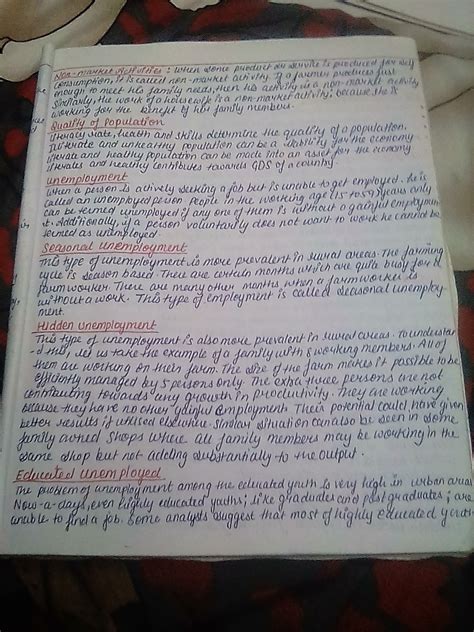 Non-market Activities : when some product or service is produced for self
consumption, it is called non-market activity. If a farmer produces just
enough to meet his family needs, then his activity is a non-market activity
Similarly, the work of housewife is a non-market activity; because she is
working for the benefit of her family members.
Quality of Population
literacy state, health and skills determine the quality of a population.
Illiterate and unhealthy population can be a liability for the economy.
literate and healthy population can be made into an asset for the economy
literates and healthy contributes towards GDS of a country.
unemployment
when a person is actively seeking a job but is unable to get employed. he is
called an unemployed person people in the working age (15 to 59 years only
can be termed unemployed if any one of them is without a gainful employmen
t. Additionally, if a person voluntarily does not want to work he cannot be
termed as unemployed
Seasonal unemployment
This type of unemployment is more prevalent in rural areas. The farming
cycle is season based. There are certain months which are quite busy for a
farm worker. There are many other months when a farm worker is
without a work. This type of employment is called seasonal unemploy-
ment.
Hidden unemployment
This type of unemployment is also more prevalent in rural areas. To understan
-d this, let us take the example of a family with 8 working members. All of
them are working on their farm. The size of the farm makes it possible to be
efficiently managed by 5 persons only. The extra three persons are not
contributing towards any growth in productivity. They are working
because they have no other gainful employment. Their potential could have given
better results if utilised elsewhere. Similar situation can also be seen in some
family owned shops where all family members may be working in the
same shop but not adding substantially to the output.
Educated unemployed
The problem of unemployment among the educated youth is very high in urban areas
Now-a-days, even highly educated youths; like graduates and post graduates; are
unable to find a job. Some analysts suggest that most of highly educated youths